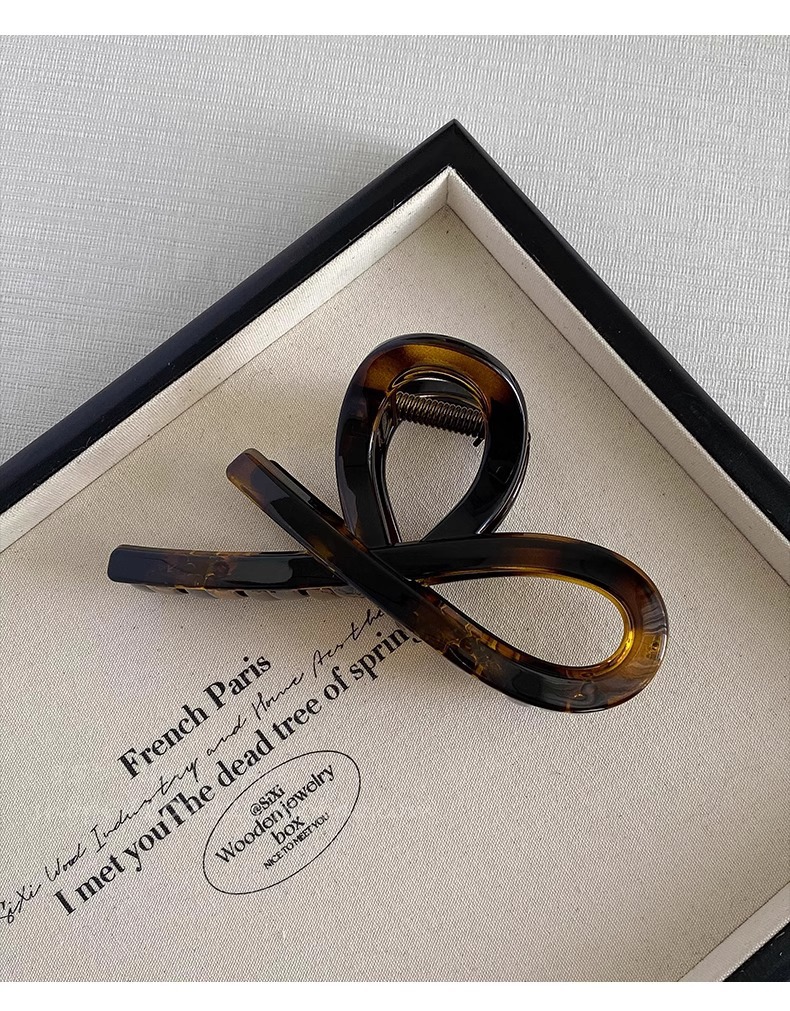 French Paris
SiXi Wood Industry and Home Aesthe
I met youThe dead tree of spring
@SiXi
Wooden jewelry
box
NICE TO MEET YOU